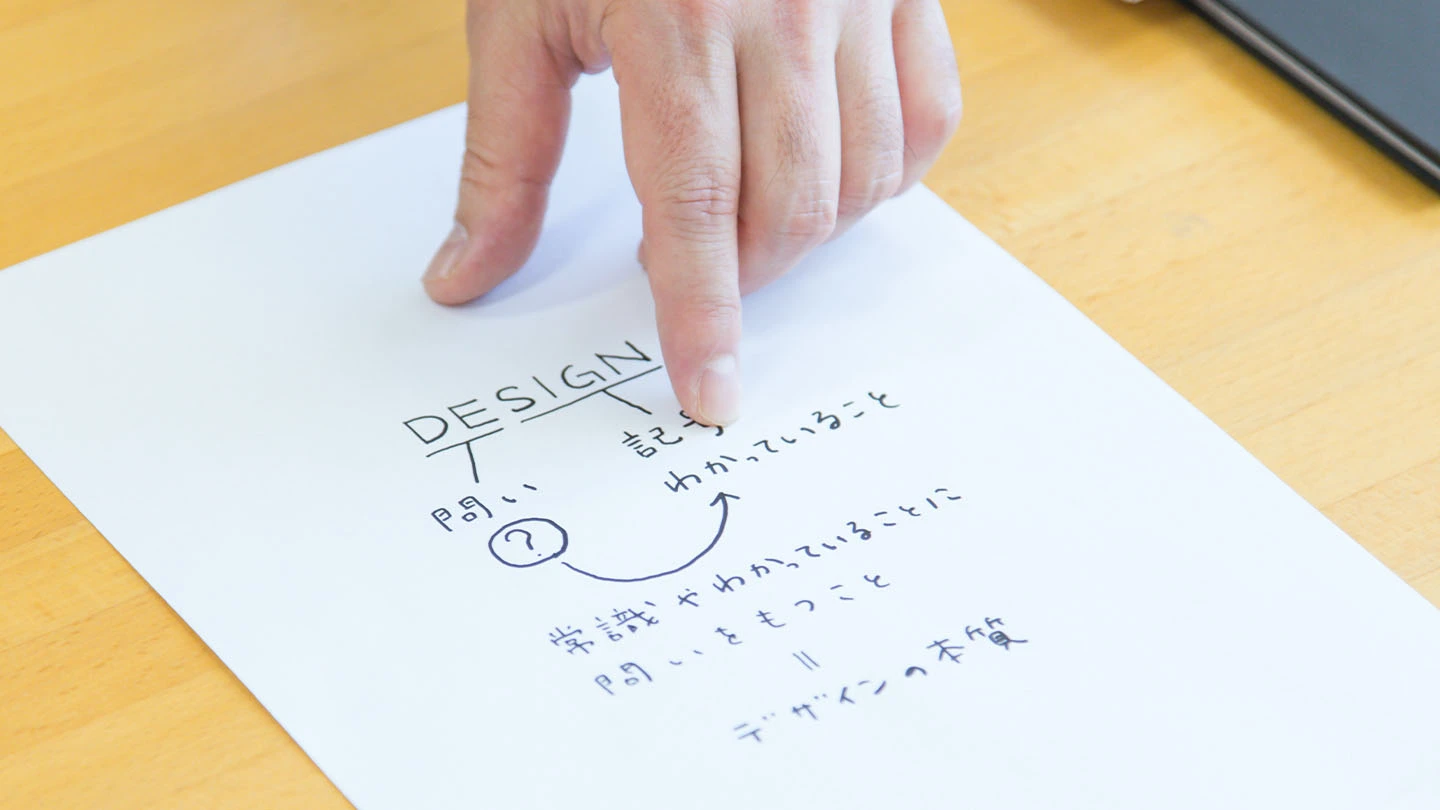 DESIGN
問い
記号
?
わかっていること
常識やわかっていることに
問いをもつこと
=
デザインの本質